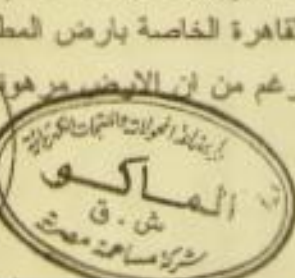 قاهرة الخاصة بارض المط
رغم من ان الارض مرهون
الماكو
ش . ق
شركة مساهمة مصرية